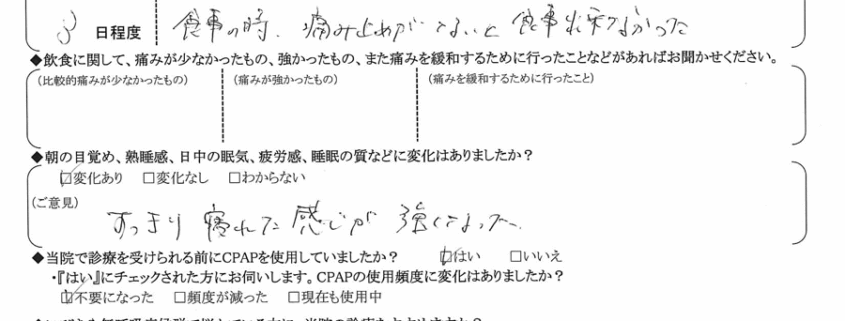 3 日程度 食事の時、痛み止めがないと食事出来なかった
◆飲食に関して、痛みが少なかったもの、強かったもの、また痛みを緩和するために行ったことなどがあればお聞かせください。
(比較的痛みが少なかったもの) (痛みが強かったもの) (痛みを緩和するために行ったこと)
◆朝の目覚め、熟睡感、日中の眠気、疲労感、睡眠の質などに変化はありましたか?
☑変化あり □変化なし □わからない
(ご意見)
すっきり寝れた感じが強くなった。
◆当院で診療を受けられる前にCPAPを使用していましたか? ☑はい □いいえ
・『はい』にチェックされた方にお伺いします。CPAPの使用頻度に変化はありましたか?
☑不要になった □頻度が減った □現在も使用中